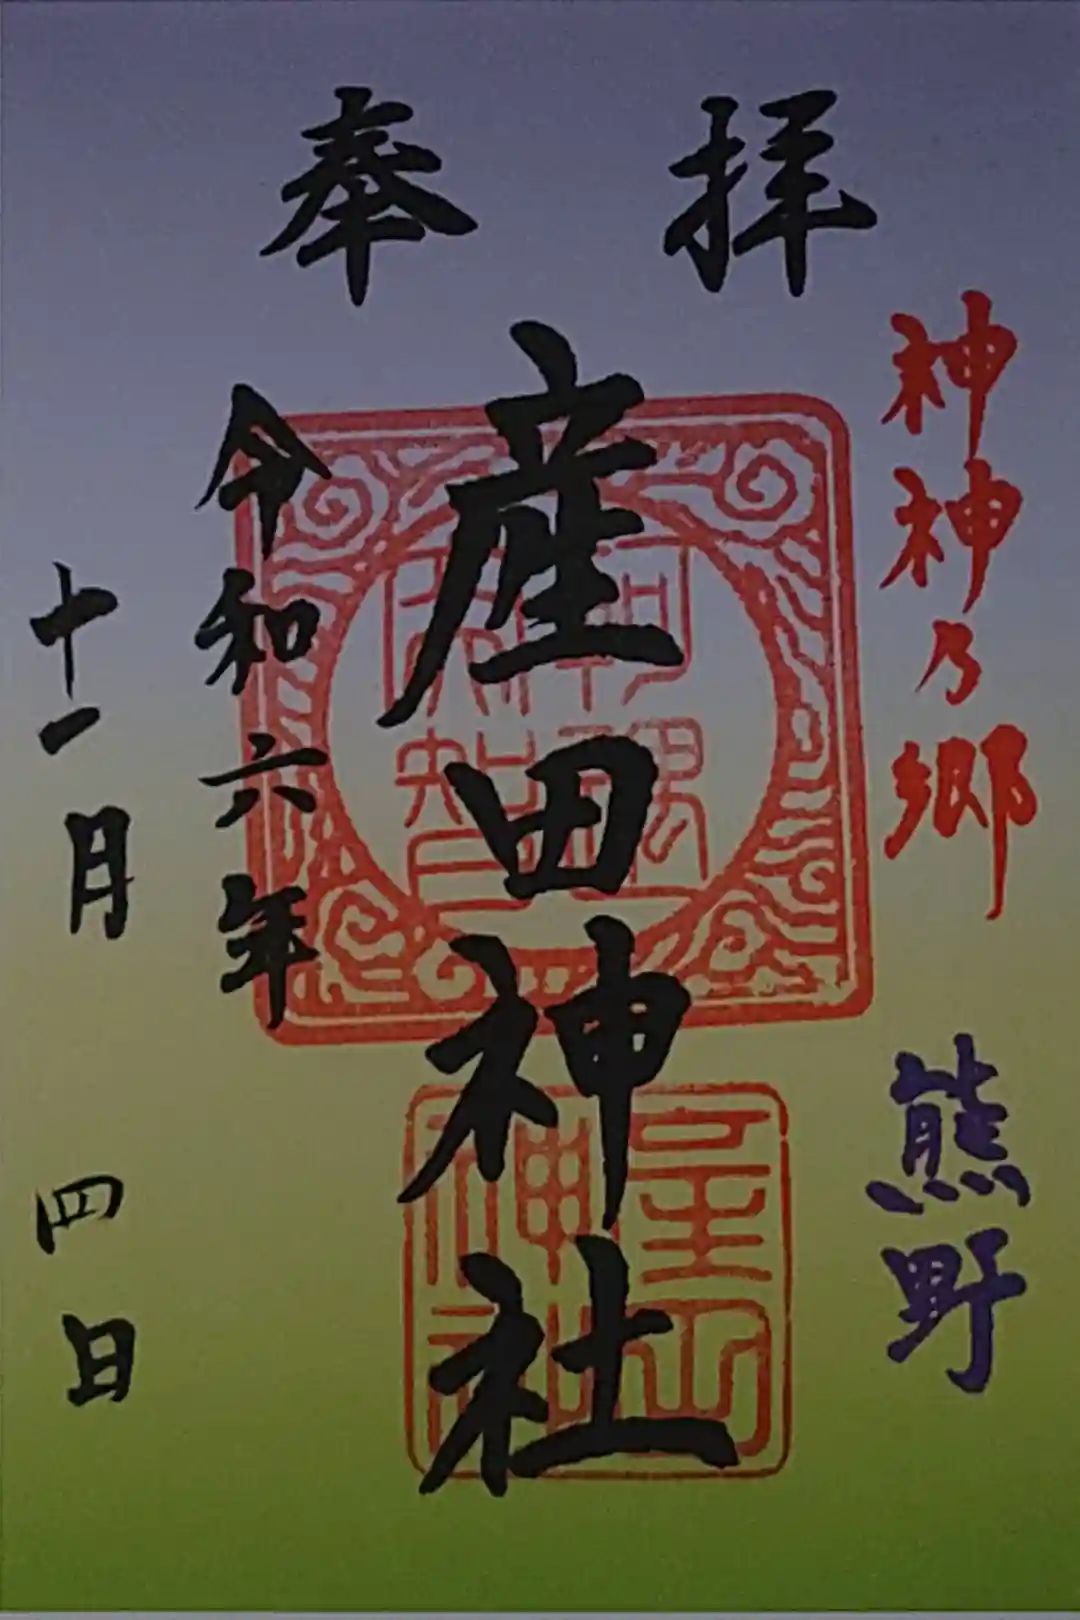 奉拝
神神乃郷
熊野
産田神社
令和六年
十一月四日